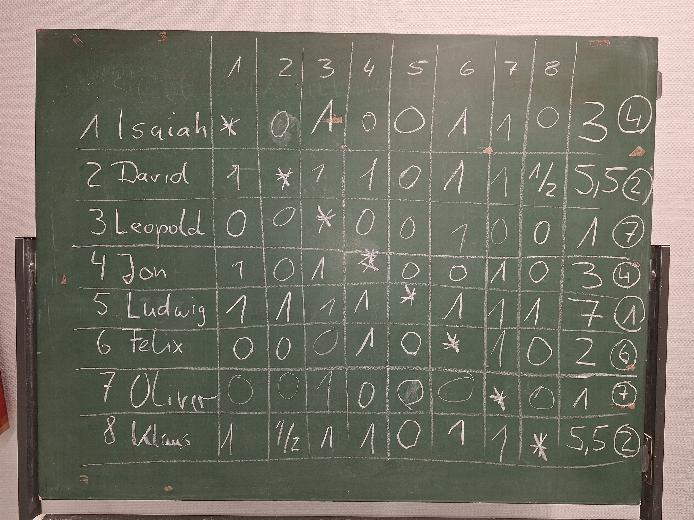 1 2 3 4 5 6 7 8
1 Isaiah * 0 1 0 0 1 1 0 3 4
2 David 1 * 1 1 0 1 1 1/2 5,5 2
3 Leopold 0 0 * 0 0 1 0 0 1 7
4 Jon 1 0 1 * 0 0 1 0 3 4
5 Ludwig 1 1 1 1 * 1 1 1 7 1
6 Felix 0 0 0 1 0 * 1 0 2 6
7 Oliver 0 0 1 0 0 0 * 0 1 7
8 Klaus 1 1/2 1 1 0 1 1 * 5,5 2